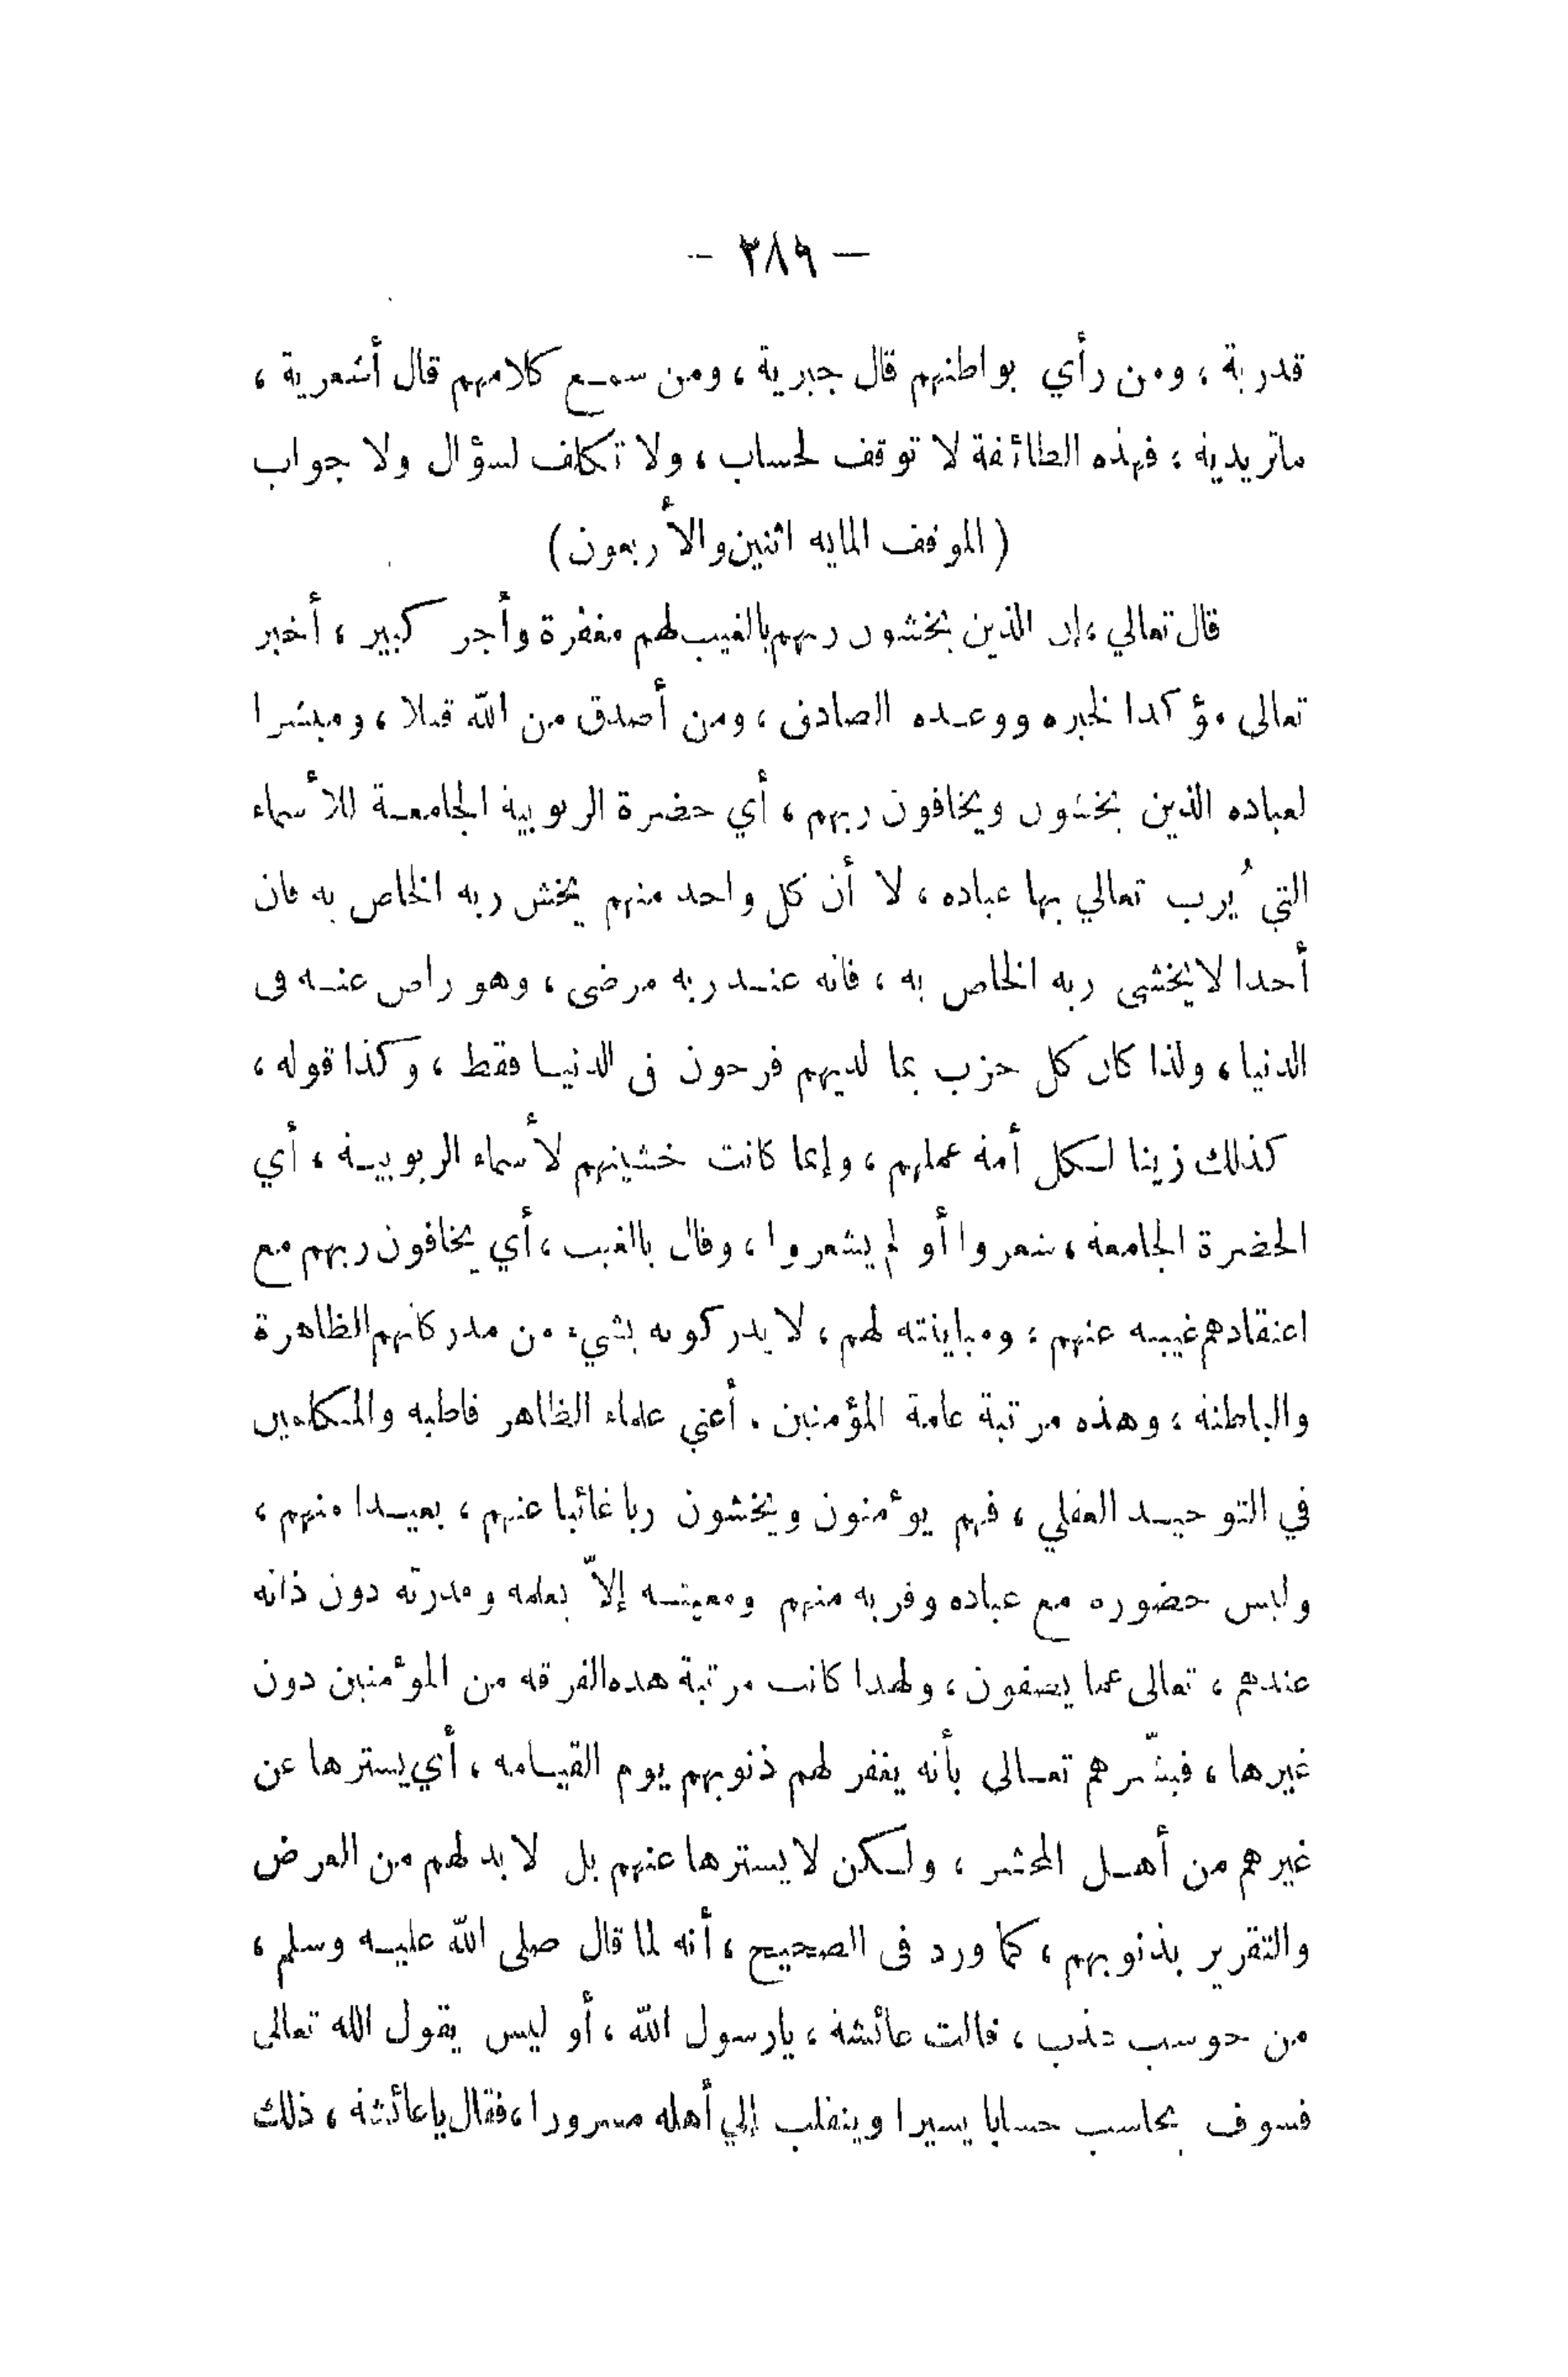 — ٣٨٩ —
قدرية ، ومن رأي بواطنهم قال جبرية ، ومن سمـع كلامهم قال أشعرية ،
ماتريدية ، فهذه الطائفة لا توقف لحساب ، ولا تكلف لسؤال ولا جواب
( الموقف المايه اثنين والأربعون )
قال تعالي ، إن الذين يخشون ربهم بالغيب لهم مغفرة وأجر كبير ، أخبر
تعالى مؤكدا لخبره ووعـده الصادق ، ومن أصدق من الله قيلا ، ومبشرا
لعباده الذين يخشون ويخافون ربهم ، أي حضرة الربوبية الجامعـة للأسماء
التي يُرب تعالي بها عباده ، لا أن كل واحد منهم يخش ربه الخاص به فان
أحدا لا يخشى ربه الخاص به ، فانه عنـد ربه مرضى ، وهو راض عنـه فى
الدنيا ، ولذا كان كل حزب بما لديهم فرحون فى الدنيـا فقط ، وكذا قوله ،
كذلك زينا لـكل أمة عملهم ، وإنما كانت خشيتهم لأسماء الربوبيـة ، أي
الحضرة الجامعة ، شعروا أو لم يشعروا ، وقال بالغيب ، أي يخافون ربهم مع
اعتقادهم غيبـه عنهم ، ومباينته لهم ، لا يدركونه بشيء من مدركاتهم الظاهرة
والباطنة ، وهذه مرتبة عامة المؤمنين . أعني علماء الظاهر قاطبه والمـكلمين
في التوحيـد العقلي ، فهم يوٴمنون ويخشون ربا غائبا عنهم ، بعيـدا منهم ،
وليس حضوره مع عباده وقربه منهم ومعيتـه إلاّ بعلمه وقدرته دون ذاته
عندهم ، تعالى عما يصفون ، ولهذا كانت مرتبة هذه الفرقه من الموٴمنين دون
غيرها ، فبشّرهم تعـالى بأنه يغفر لهم ذنوبهم يوم القيـامه ، أي يسترها عن
غيرهم من أهـل المحشر ، ولـكن لا يسترها عنهم بل لا بد لهم من العرض
والتقرير بذنوبهم ، كما ورد فى الصحيح ، أنه لما قال صلى الله عليـه وسلم ،
من حوسب عذب ، قالت عائشة ، يارسول الله ، أو ليس يقول الله تعالى
فسوف يحاسب حسابا يسيرا وينقلب إلي أهله مسرورا ، فقال ياعائشة ، ذلك